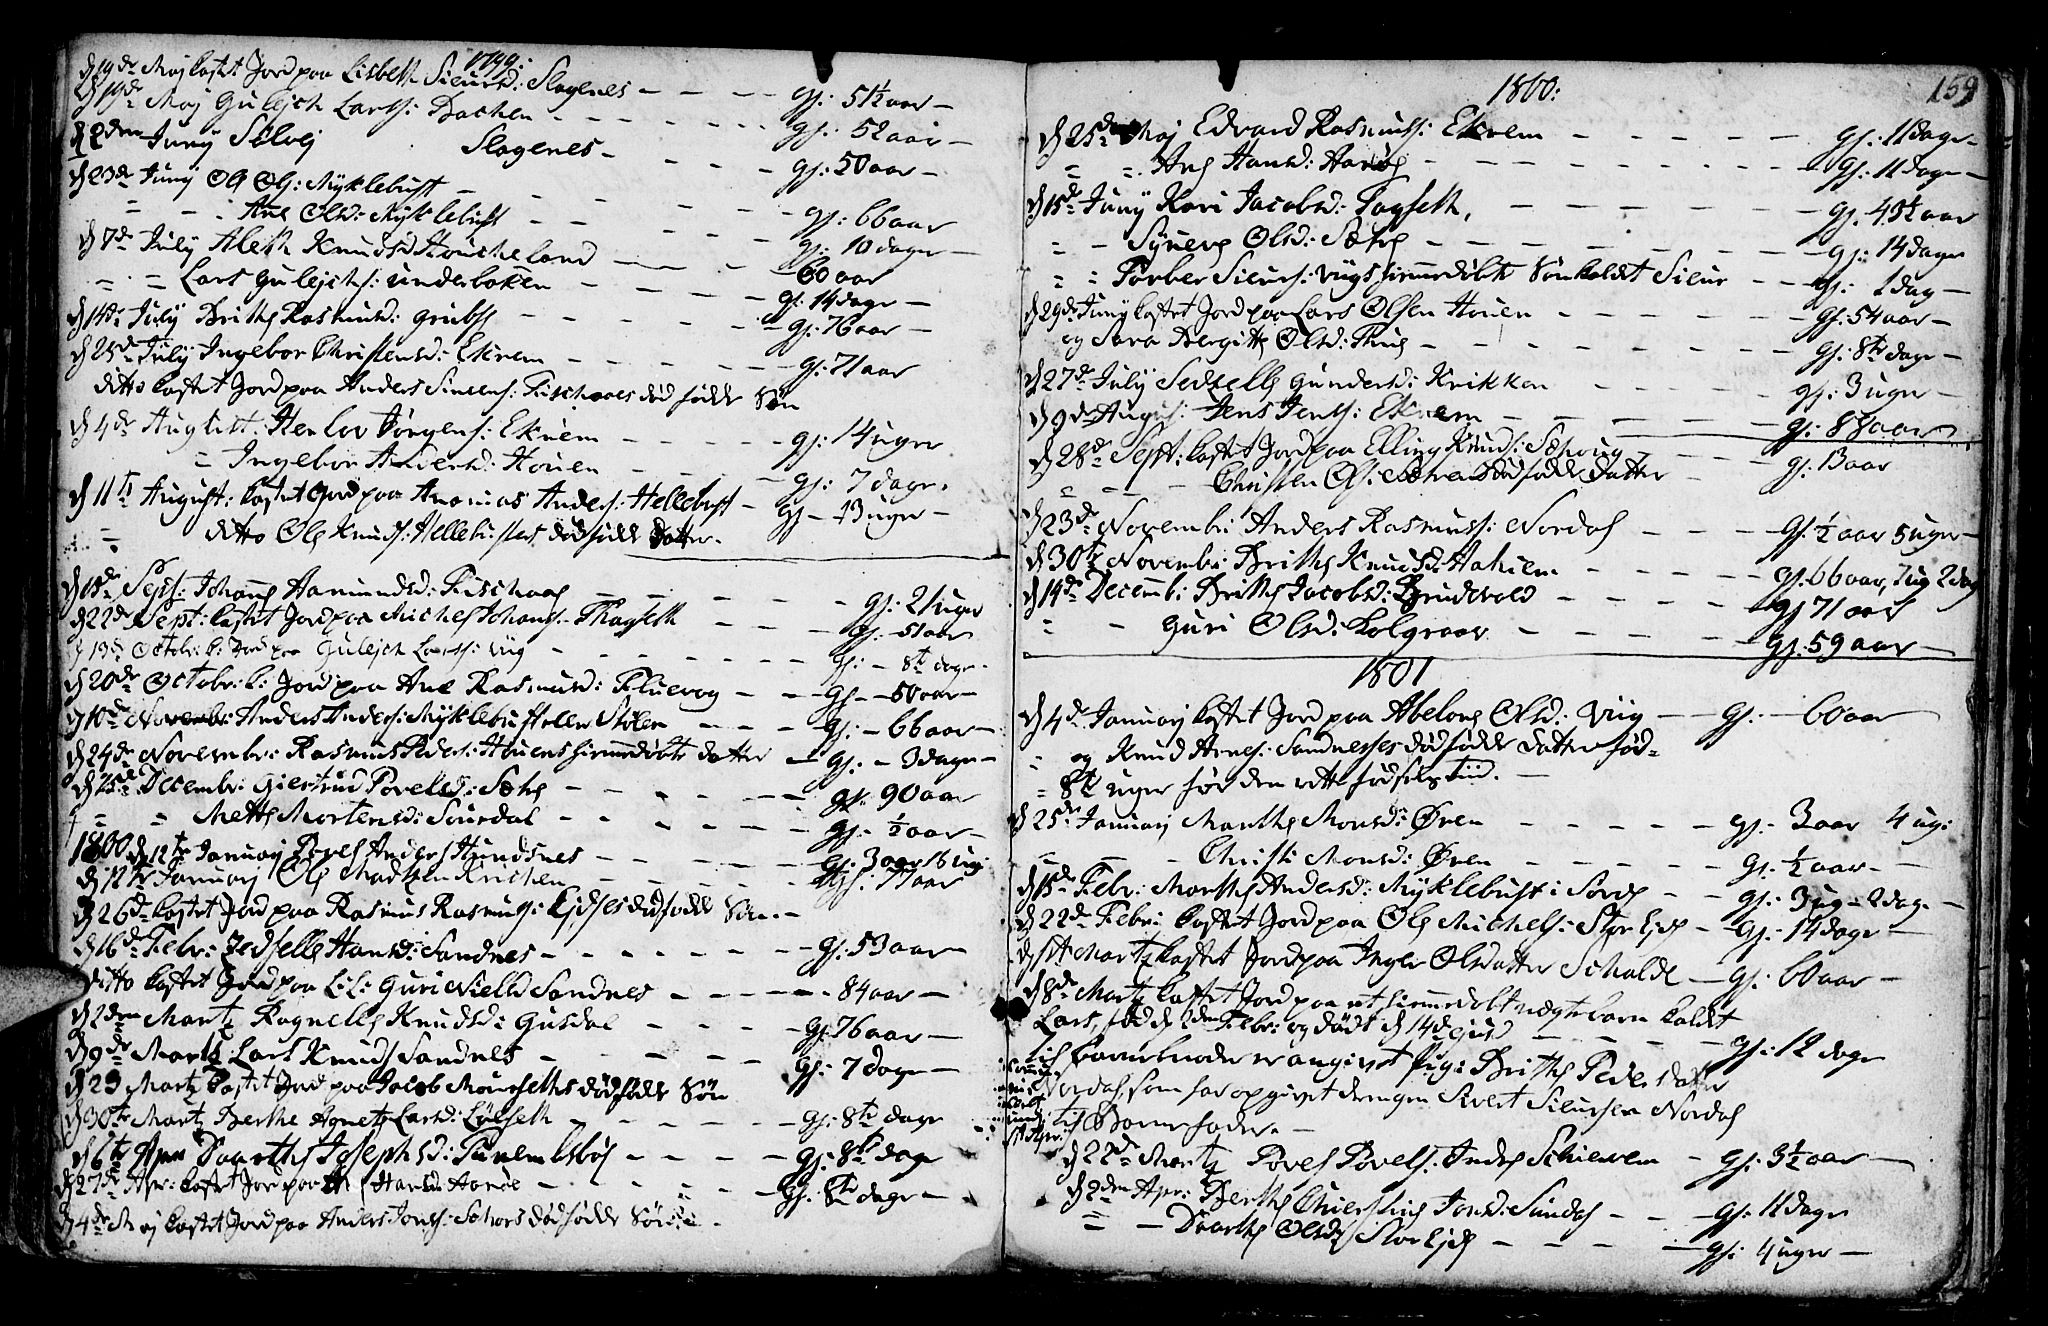 1799:
d 19de Maj kastet Jord paa Lisbeth Siursd: Slagenes — gl: 51½ aar —
d 19de Maj Gulejch Larss: Bachen — gl: 52 aar —
d 2den Junij Sølvej Slagenes — gl: 50 aar —
d 23de Junij Ole Ols: Myklebust — gl: 66 aar
" — : Ane Olsd: Myklebust — gl: 10 dage —
d 7de Julij Aleth Knudsd Houcheland — 60 aar
" = Lars Gulejchs: underbaken — gl: 14 dage —
d 14de Julij Brithe Rasmusd: Grubse — gl: 76 aar —
d 25de Julij Ingebor Christensd: Ekrem — gl: 71 aar
ditto kastet Jord paa Anders Siversens: Fischaaes død fødde Søn
d 4de August: Jørgens: Ekrem — gl: 14 uger
= Ingebor Andersd: Houen — gl: 7 dage.
d 11te August: kastet Jord paa Ananias Anders: Hellebust — gl — 13 uger —
= ditto Ole Knuds: Hellebustes dødfødde Datter.
d 15de Sept: Johane Aamundsd: Fischaae — gl: 21 uger
d 22de Sept: kastet Jord paa Michel Johans: Thagseth — gl — 51 aar
d 13de Octobr: k: Jord paa Gulejch Larss: Viig — gl: — 8te dage.
d 20de Octobr: k: Jord paa Ane Rasmusd: Fluevog — gl — 50 aar —
d 10de Novembr: Anders Anders: Myklebust eller Stølen — gl: — 66 aar —
d 24de Novembr: Rasmus Peders: Houens hiemmedøbte datter — gl: — 3 dage —
d 15de Decembr: Giertrud Povelsd: Sæthe — gl: 90 aar
" " Methe Mortensd: Sørdal — gl: ½ aar —
1800 d 12te Januarj Povel Anders Hundsnes — gl: 3 aar 16 ug:
d 12te Januarj Ole Madtzen Krichen — gl: 77 aar
d 26de kastet Jord paa Rasmus Rasmus: Ejdses dødfødde Søn. —
d 16de Febr: Zedselle Hansd: Sandnes — gl: 53 aar —
ditto kastet Jord paa L: L: Guri Nielsd Sandnes — 84 aar —
d 2den Martz Ragnelle Knudsd: Gusdal — gl: 76 aar —
d 9de Martz Lars Knuds Sandnes — gl: 7 dage —
d 23 Martz kastet Jord paa Jacob Mourseths dødfødde Søn
d 30te Martz Berthe Agnete Larsd: Løfseth — gl: 8te dage
d 6te Apr: Daarthe Josephsd: — gl: 8te dage
d 27de Apr: kastet Jord paa Hansd: Aarøe — gl: 8te dage —
d 4de Maj kastet Jord paa Anders Jons: dødfødde Søn —
1800: 159
d 25de Maj Edvard Rasmus: Ekrem — gl: 11 dage —
= ". Ane Hansd: Aarøe — gl: 11 dage —
d 15de Junij Kari Jacobsd: Tagseth, — gl: 49½ aar
" — Synneve Olsd: Sæthe — gl: 14 dage
" : Torber Siurs: Viigs hiemmedøbte Søn kaldet Siur — gl: 1 dag —
d 29de Junij kastet Jord paa Lars Olsen Houen — gl: 54 aar —
og Sara Bergitte Olsd: Thue — gl: 8te dage —
d 27de Julij Sedselle Gundersd: Krikken — gl: 3 uger —
d 9de August: Jens Jens: Ekrem — gl: 88 aar
d 28de Sept: kastet Jord paa Elling Knuds: Sæhoug — gl: 13 aar
" — Christen Ols: Sætres dødfødde Datter —
d 23de Novembr: Anders Rasmus: Nordal — gl: ½ aar 5 uger —
d 30te Novembr: Brithe Knudsd: Hahiem — gl: 66 aar, 7 ug 2 dag
d 14de Decemb: Brithe Jacobsd: Brudevold — gl 71 aar
" — Guri Olsd: Kolgraav — gl: 59 aar —
1801
d 4de Januarj kastet Jord paa Abelone Olsd: Viig — gl: — 60 aar
" og Knud Arnes: Sandneses dødfødde datter fød=
= 8te uger før den rette fødsels tiid. —
d 25de Januarj Marthe Monsd: Øren — gl: 3 aar 4 ug:
— Christi: Monsd: Øren — gl: ½ aar —
d 15de Febr: Marthe Andersd: Myklebust i Sørde — gl: 3 ug — 2 dag. —
d 22de Febr: kastet Jord paa Ole Michels: Stor Ejde — gl: — 14 dage —
d 1te Martz kastet Jord paa Inger Olsdatter Schalde — gl: 60 aar —
d 8de Martz kastet Jord paa et hiemmedøbt uægte barn kaldt
Lars, fød d 2den Febr: og døde d 14de ejusd — gl: 12 dage
til barnemoder er angivet Pige Brithe Peders datter
Nordal, som har opgivet drengen Sivert Siursen Nordal
til Barnefader. —
d 22de Martz Povel Povels: Indre Schiervem — gl: 3½ aar —
d 2den Apr: Berthe Christine Jonsd: Sundal — gl: 11 dage
= — Daarthe Olsd: Stor Ejde — gl: 4 uger —